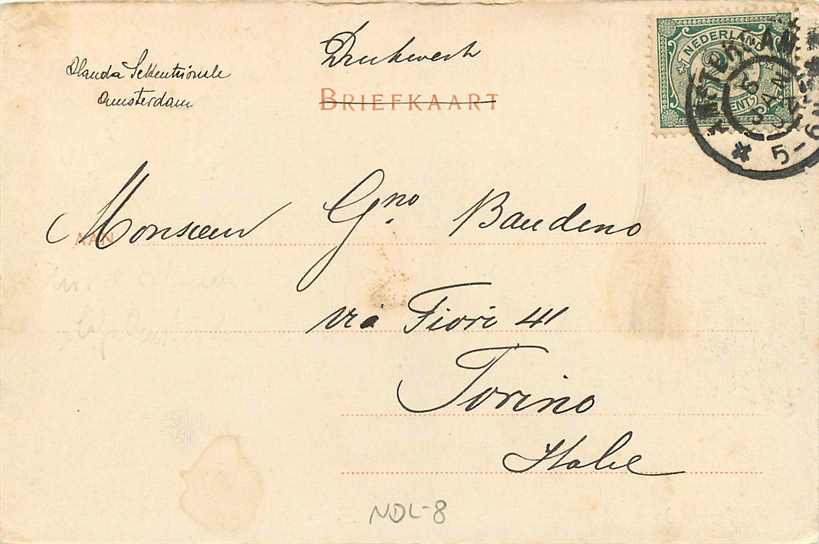 Olanda Settentrionale
Amsterdam
Drukwerk
BRIEFKAART
NEDERLAND
CENT
JAN
5-6N
AAN
Monsieur Gno Baudeno
via Fiori 41
Torino
Italie
NDL-8